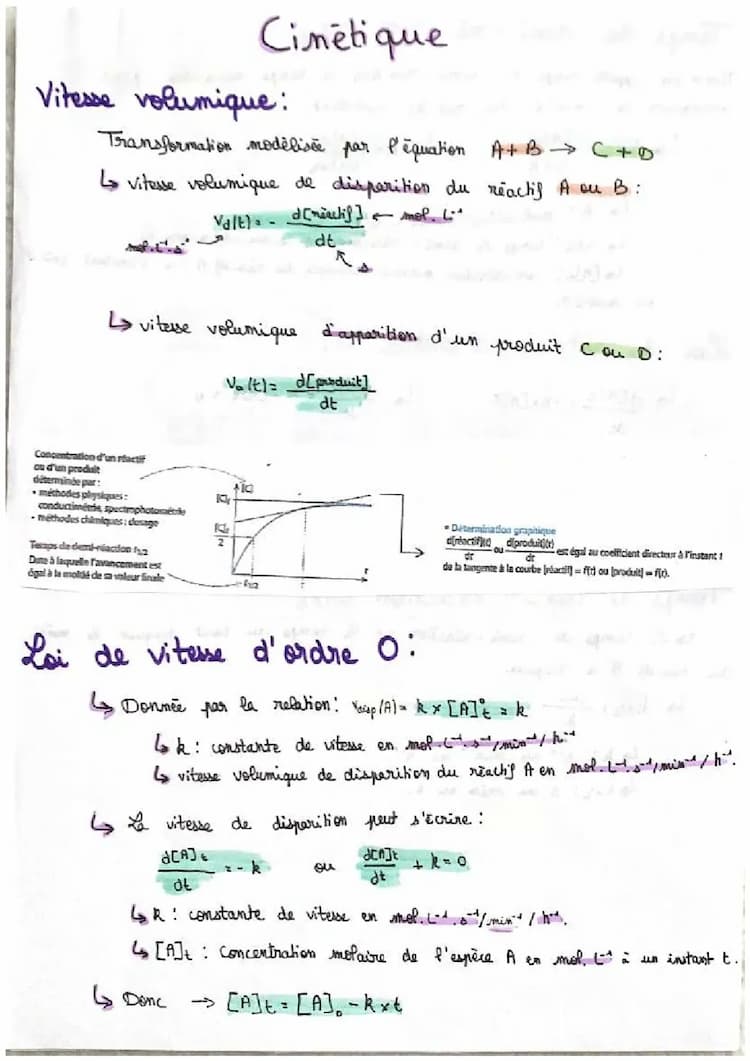 Cinétique
Vitesse volumique :
Transformation modélisée par l'équation A + B → C + D
↳ vitesse volumique de disparition du réactif A ou B :
Vd(t) = - d[réactif]/dt ← mol.L⁻¹
mol.L⁻¹.s⁻¹
s
↳ vitesse volumique d'apparition d'un produit C ou D :
Va(t) = d[produit]/dt
Concentration d'un réactif
ou d'un produit
déterminée par :
• méthodes physiques :
conductimétrie, spectrophotométrie
• méthodes chimiques : dosage
Temps de demi-réaction t1/2
Date à laquelle l'avancement est
égal à la moitié de sa valeur finale
[C]
[C]f
[C]f/2
t1/2
t
• Détermination graphique
d[réactif](t)/dt ou d[produit](t)/dt est égal au coefficient directeur à l'instant t
de la tangente à la courbe [réactif] = f(t) ou [produit] = f(t).
Loi de vitesse d'ordre 0 :
↳ Donnée par la relation : Vdisp(A) = k × [A]t⁰ = k
↳ k : constante de vitesse en mol.L⁻¹.s⁻¹/min⁻¹/h⁻¹
↳ vitesse volumique de disparition du réactif A en mol.L⁻¹.s⁻¹/min⁻¹/h⁻¹.
↳ La vitesse de disparition peut s'écrire :
d[A]t/dt = - k ou d[A]t/dt + k = 0
↳ k : constante de vitesse en mol.L⁻¹.s⁻¹/min⁻¹/h⁻¹.
↳ [A]t : Concentration molaire de l'espèce A en mol.L⁻¹ à un instant t.
↳ Donc → [A]t = [A]₀ - k × t